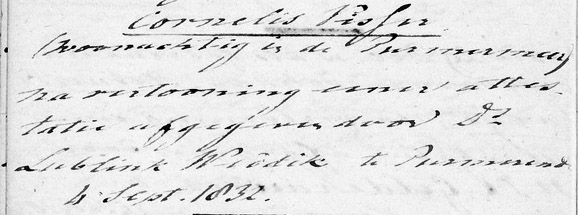 Cornelis Visser
(woonachtig in de Purmermeer)
na vertooning eener attes-
tatie afgegeven door Ds
Lublink Weddik te Purmerend
4 Sept. 1832.